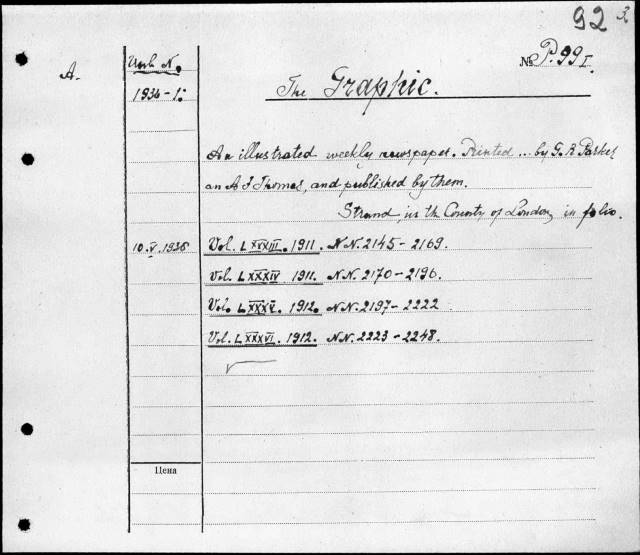 92 2
№ P. 99 I.
A.
Инв. N.
1934-1:
The Graphic.
An illustrated weekly newspaper. Printed ... by G. R Parker
an A J Thomas, and published by them.
Strand, in th County of London, in folio.
10.V.1936
Vol. LXXXIII. 1911. NN. 2145-2169.
Vol. LXXXIV 1911. NN. 2170-2196.
Vol. LXXXV. 1912. NN. 2197-2222
Vol. LXXXVI. 1912. NN. 2223-2248.
Цена